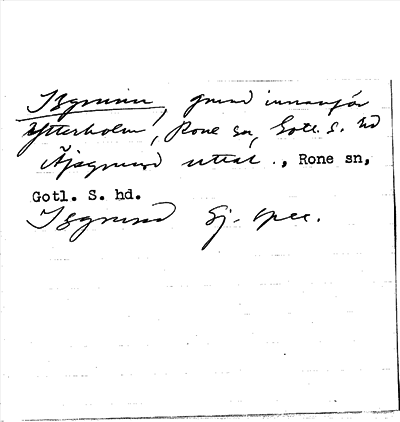 Isgrunn, grund innanför
Ytterholm, Rone sn, Gotl. S. hd
uttal., Rone sn,
Gotl. S. hd.
Isgrund Sj. spec.